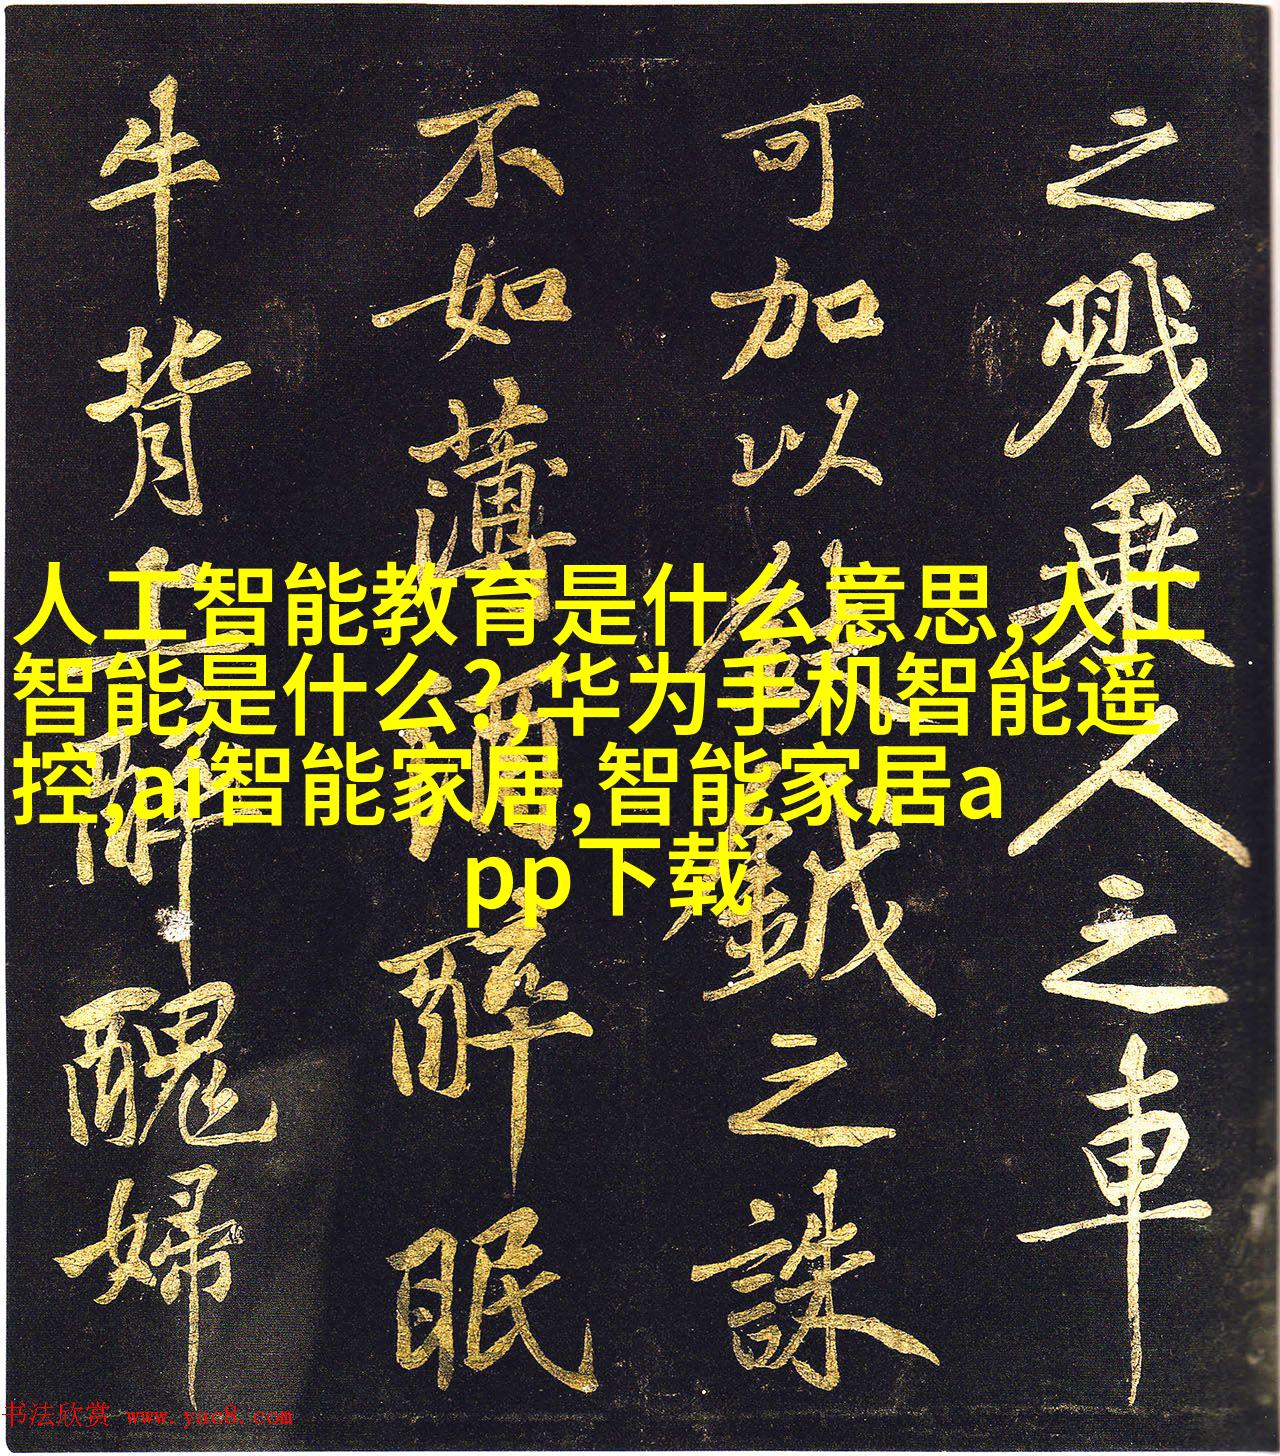 之戮乘人之車
可加以鈇鉞之誅
不如薄酒醉眠
牛背上醉醜婦
人工智能教育是什么意思,人工
智能是什么?,华为手机智能遥
控,ai智能家居,智能家居a
pp下载
书法欣赏 www.yac8.com